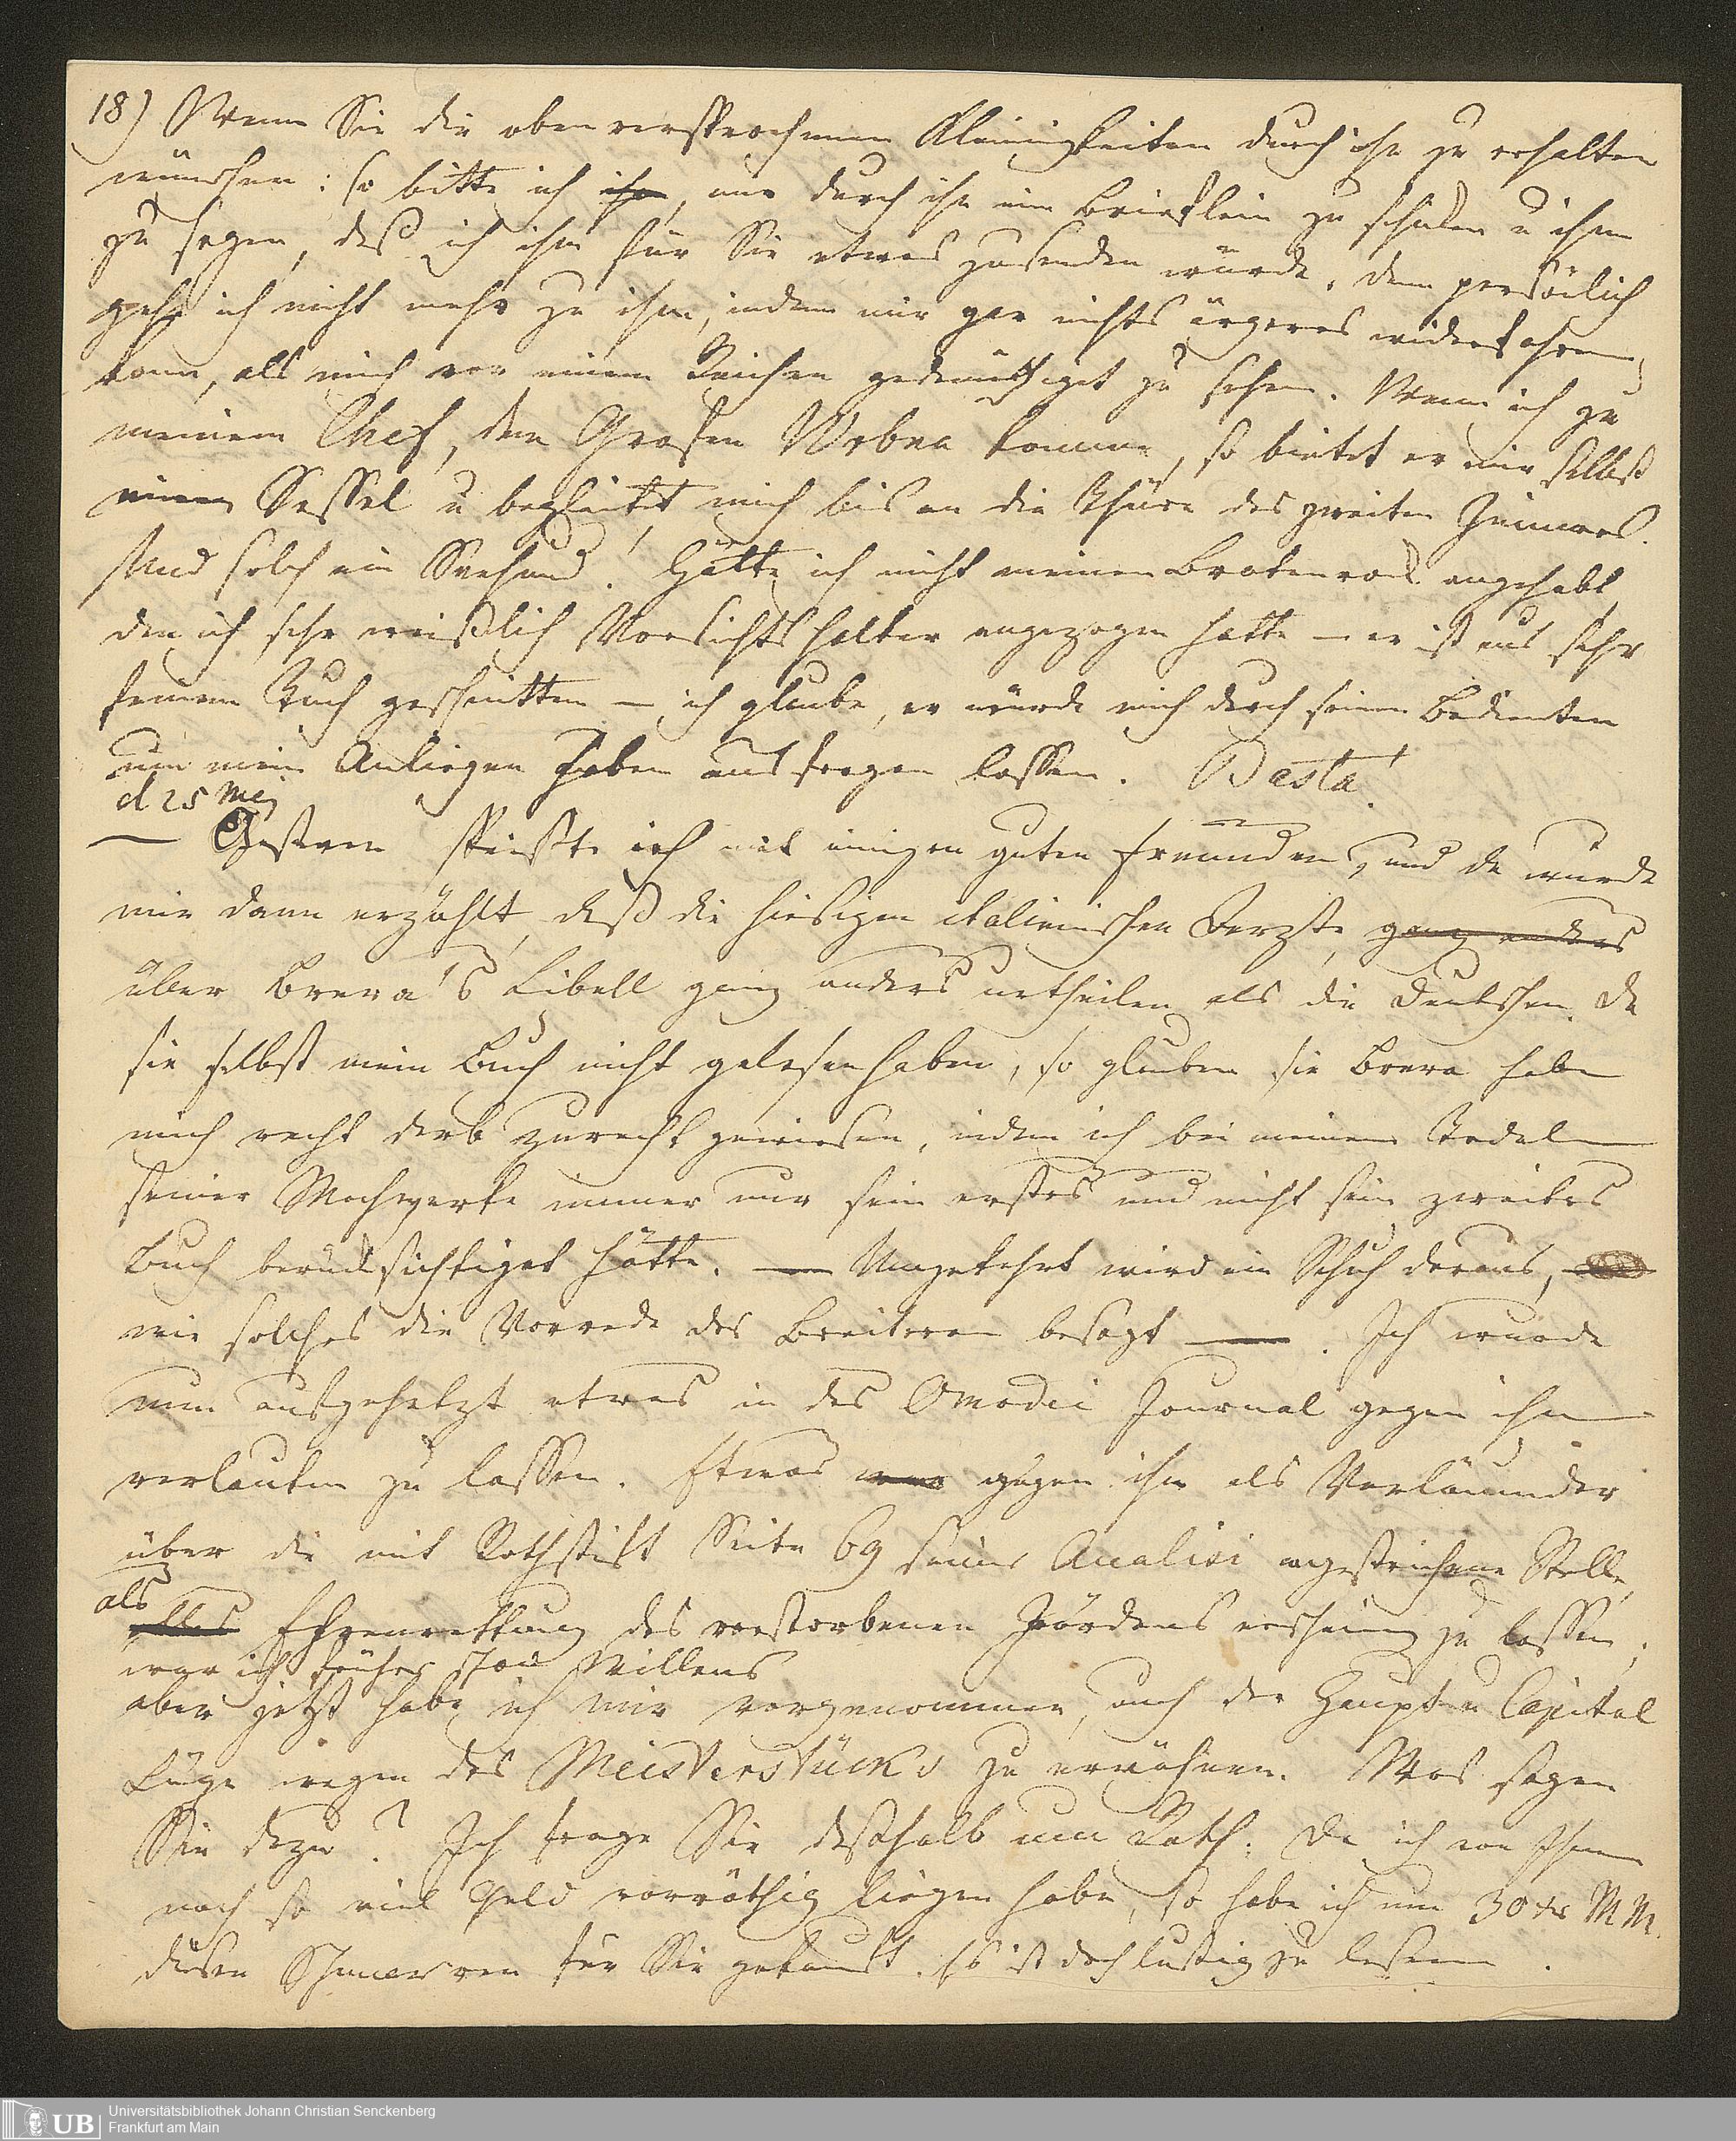 18) Wenn Sie die oben versprochenen Kleinigkeiten durch ihn zu erhalten
wünschen: so bitte ich ihn, mir durch ihn ein Brieflein zu schicken u ihm
zu sagen, daß ich ihm für Sie etwas zusenden würde, denn persönlich
gehe ich nicht mehr zu ihm, indem mir gar nichts ärgeres widerfahren
kann, als mich vor einem Reichen gedemüthiget zu sehen. Wenn ich zu
meinem Chef, dem Grafen Wrbna komme, so bietet er mir selbst
einen Sessel u begleitet mich bis an die Thüre des zweiten Zimmers.
Und solch ein Seehund! Hätte ich nicht meinen Bratenrock angehabt
den ich sehr weißlich Vorsichts halber angezogen hatte — er ist aus sehr
feinem Tuch geschnitten — ich glaube, er würde mich durch seinen Bedienten
um mein Anliegen haben ausfragen lassen. Basta!
d 25 Mei
— Gestern speißte ich mit einigen guten Freunden, und da wurde
mir dann erzählt, daß die hiesigen italienischen Aerzte, ganz anders
über Brera's Libell ganz anders urtheilen als die Deutschen. Da
sie selbst mein Buch nicht gelesen haben, so glauben sie Brera habe
mich recht derb zurecht gewiesen, indem ich bei meinem Tadel
seiner Machwerke immer nur sein erstes und nicht sein zweites
Buch berücksichtiget hätte. — Umgekehrt wird ein Schuh daraus,
wie solches die Vorrede des Breiteren besagt — . Ich wurde
nun aufgehetzt etwas in des Omodei Journal gegen ihn
verlauten zu lassen. Etwas gegen ihn als Verläumder
über die mit Rothstift Seite 69 seiner Analisi angestrichene Stelle,
als
alles Ehrenrettung des verstorbenen Jördens erscheinen zu lassen,
war ich früher schon Willens
aber jetzt habe ich mir vorgenommen, auch der Haupt u Capital
Lüge wegen des Meisterstücks zu erwähnen. Was sagen
Sie dazu? Ich frage Sie deßhalb um Rath. Da ich von Ihnen
noch so viel Geld vorräthig liegen habe, so habe ich um 30 xr M M.
diesen Schmarren für Sie gekauft. Es ist doch lustig zu lesen.
Universitätsbibliothek Johann Christian Senckenberg
Frankfurt am Main
UB